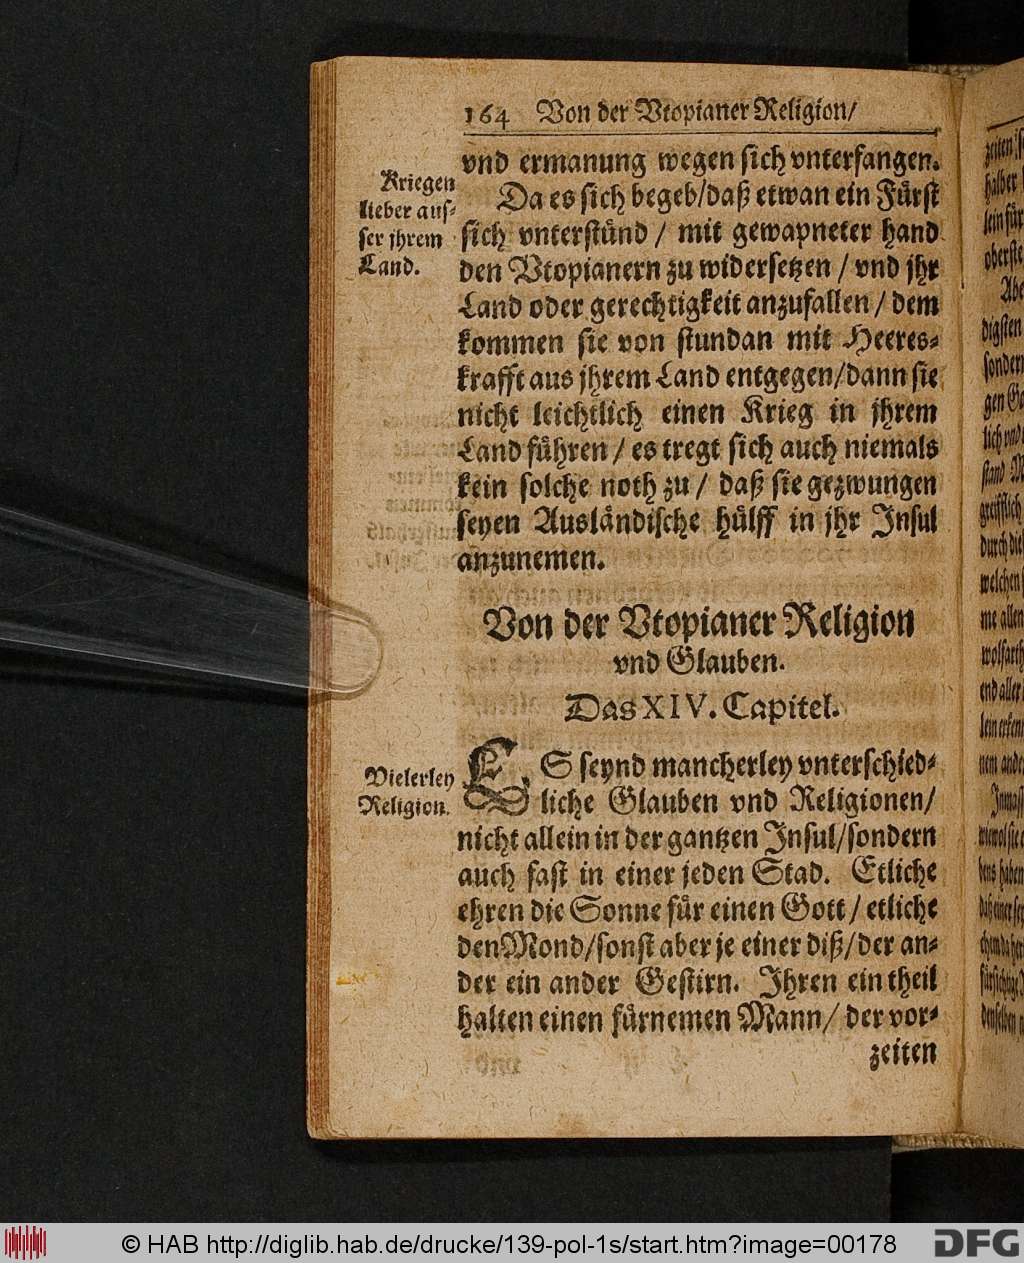 164 Von der Vtopianer Religion/
vnd ermanung wegen sich vnterfangen.
Kriegen
lieber aus-
ser jhrem
Land.
Da es sich begeb/daß etwan ein Fürst
sich vnterstünd / mit gewapneter hand
den Vtopianern zu widersetzen / vnd jhr
Land oder gerechtigkeit anzufallen / dem
kommen sie von stundan mit Heeres-
krafft aus jhrem Land entgegen/dann sie
nicht leichtlich einen Krieg in jhrem
Land führen / es tregt sich auch niemals
kein solche noth zu / daß sie gezwungen
seyen Ausländische hülff in jhr Insul
anzunemen.
Von der Vtopianer Religion
vnd Glauben.
Das XIV. Capitel.
Vielerley
Religion.
ES seynd mancherley vnterschied-
liche Glauben vnd Religionen/
nicht allein in der gantzen Insul/sondern
auch fast in einer jeden Stad. Etliche
ehren die Sonne für einen Gott / etliche
den Mond/sonst aber je einer diß/der an-
der ein ander Gestirn. Ihren ein theil
halten einen fürnemen Mann/ der vor-
zeiten
© HAB http://diglib.hab.de/drucke/139-pol-1s/start.htm?image=00178
DFG